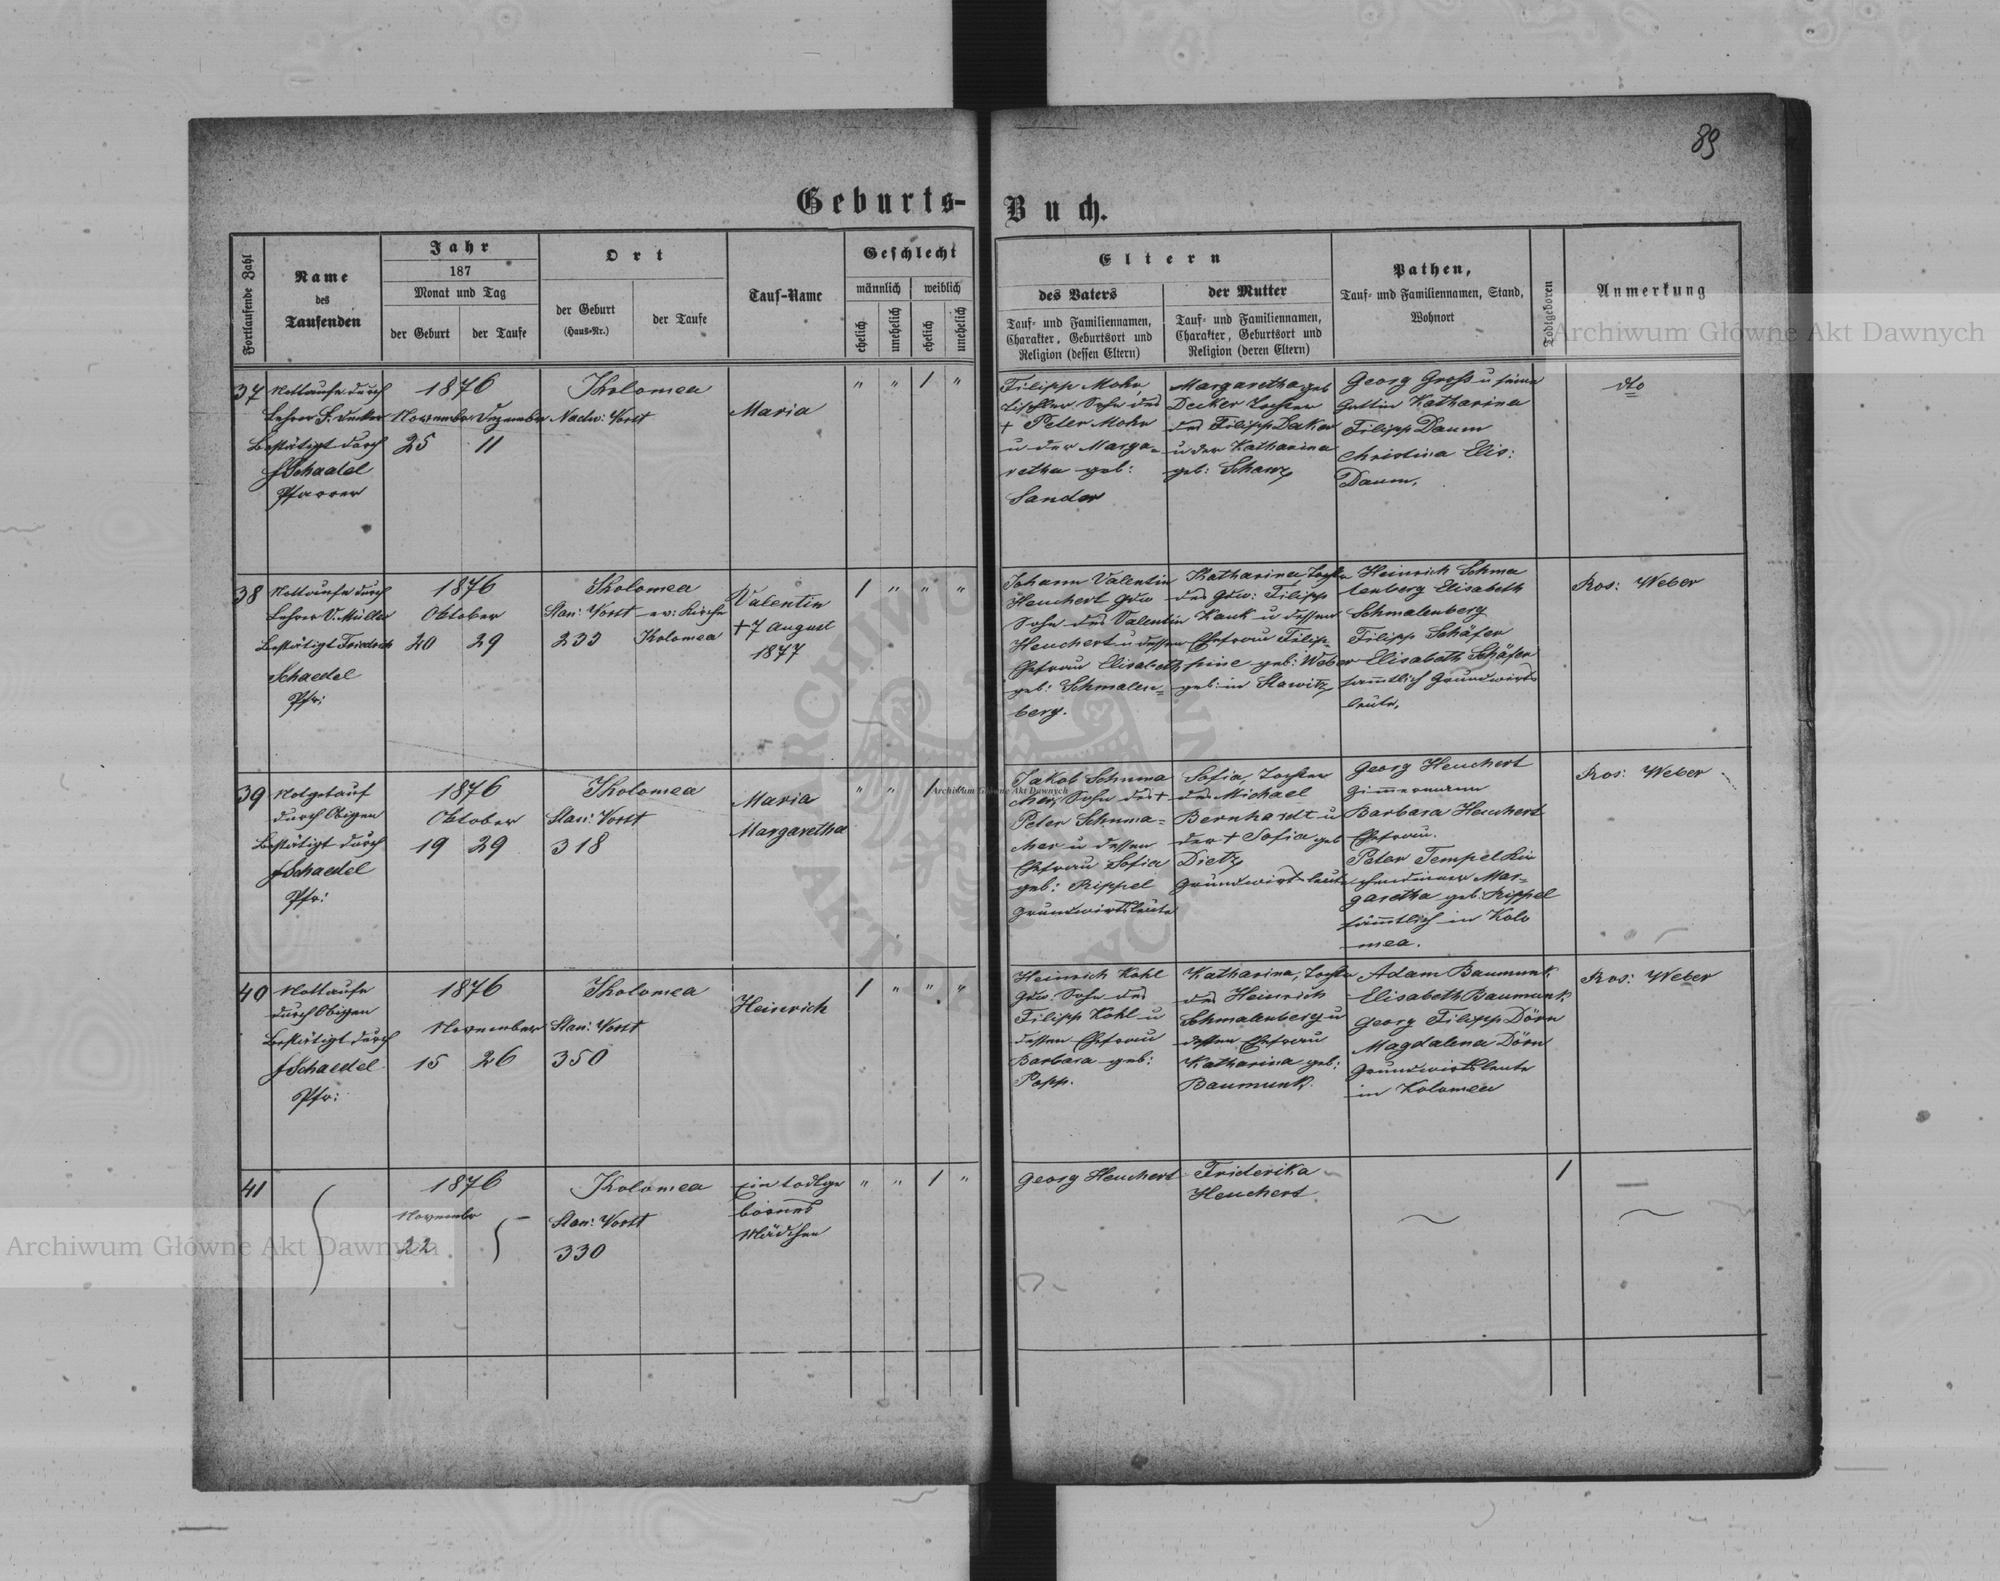 89
Geburts-Buch.
Fortlaufende Zahl
Name
des
Taufenden
Jahr
187
Monat und Tag
der Geburt
der Taufe
Ort
der Geburt
(Haus-Nr.)
der Taufe
Tauf-Name
Geschlecht
männlich
weiblich
ehelich
unehelich
ehelich
unehelich
Eltern
des Vaters
Tauf- und Familiennamen,
Charakter, Geburtsort und
Religion (dessen Eltern)
der Mutter
Tauf- und Familiennamen,
Charakter, Geburtsort und
Religion (deren Eltern)
Pathen,
Tauf- und Familiennamen, Stand,
Wohnort
Todtgeboren
Anmerkung
37
Nottaufe durch
Lehrer F. Decker
Bestätigt durch
f Schaedel
Pfarrer
1876
November Dezember
25 11
Kolomea
Nadw: Vorst
Maria
" " 1 "
Filipp Mohr
Tischler Sohn des
+ Peter Mohr
u der Marga=
retha geb:
Sander
Margaretha geb
Decker Tochter
des Filipp Deker
u der Katharina
geb: Scharz
Georg Groß u seine
Gattin Katharina
Filipp Daum
Christina Elis:
Daum.
dto
38
Nottaufe durch
Lehrer V. Müller
Bestätigt Friedrich
Schaedel
Pfr:
1876
Oktober
20 29
Kolomea
Stan: Vorst ev: Kirche
235 Kolomea
Valentin
+ 7 August
1877
1 " " "
Johann Valentin
Heuchert Gdw
Sohn des Valentin
Heuchert u dessen
Ehefrau Elisabeth
geb: Schmalen=
berg.
Katharina Tochter
des Gdw: Filipp
Kauk u dessen
Ehefrau Filip=
pine geb: Weber
geb: in Slawitz
Heinrich Schma
lenberg Elisabeth
Schmalenberg
Filipp Schäfer
Elisabeth Schäfer
sammtlich Grundwirts
leute.
Ros: Weber
39
Notgetauf
durch Obigen
Bestätigt durch
f Schaedel
Pfr:
1876
Oktober
19 29
Kolomea
Stan: Vorst
318
Maria
Margaretha
" " 1
Jakob Schuma
cher, Sohn des +
Peter Schuma=
cher u dessen
Ehefrau Sofia
geb: Rippel
Grundwirtsleute
Sofia, Tochter
des Michael
Bernhardt u
der + Sofia geb
Dietz
Grundwirtsleute
Georg Heuchert
Zimmermann
Barbara Heuchert
Ehefrau.
Peter Tempel Kir
chendiener Mar=
garetha geb: Rippel
sämmtlich in Kolo
mea.
Ros: Weber
40
Nottaufe
durch Obigen
Bestätigt durch
f Schaedel
Pfr:
1876
November
15 26
Kolomea
Stan: Vorst
350
Heinrich
1 " " "
Heinrich Kohl
Gdw. Sohn des
Filipp Kohl u
dessen Ehefrau
Barbara geb:
Popp.
Katharina, Tochter
des Heinrich
Schmalenberg u
dessen Ehefrau
Katharina geb:
Baumunk
Adam Baumunk
Elisabeth Baumunk
Georg Filipp Dörn
Magdalena Dörn
Grundwirtsleute
in Kolomea
Ros: Weber
41
1876
November
22
Kolomea
Stan: Vorst
330
ein todtge
bornes
Mädchen
" " 1 "
Georg Heuchert
Friderika
Heuchert
1
Archiwum Główne Akt Dawnych
Archiwum Główne Akt Dawnych
Archiwum Główne Akt Dawnych